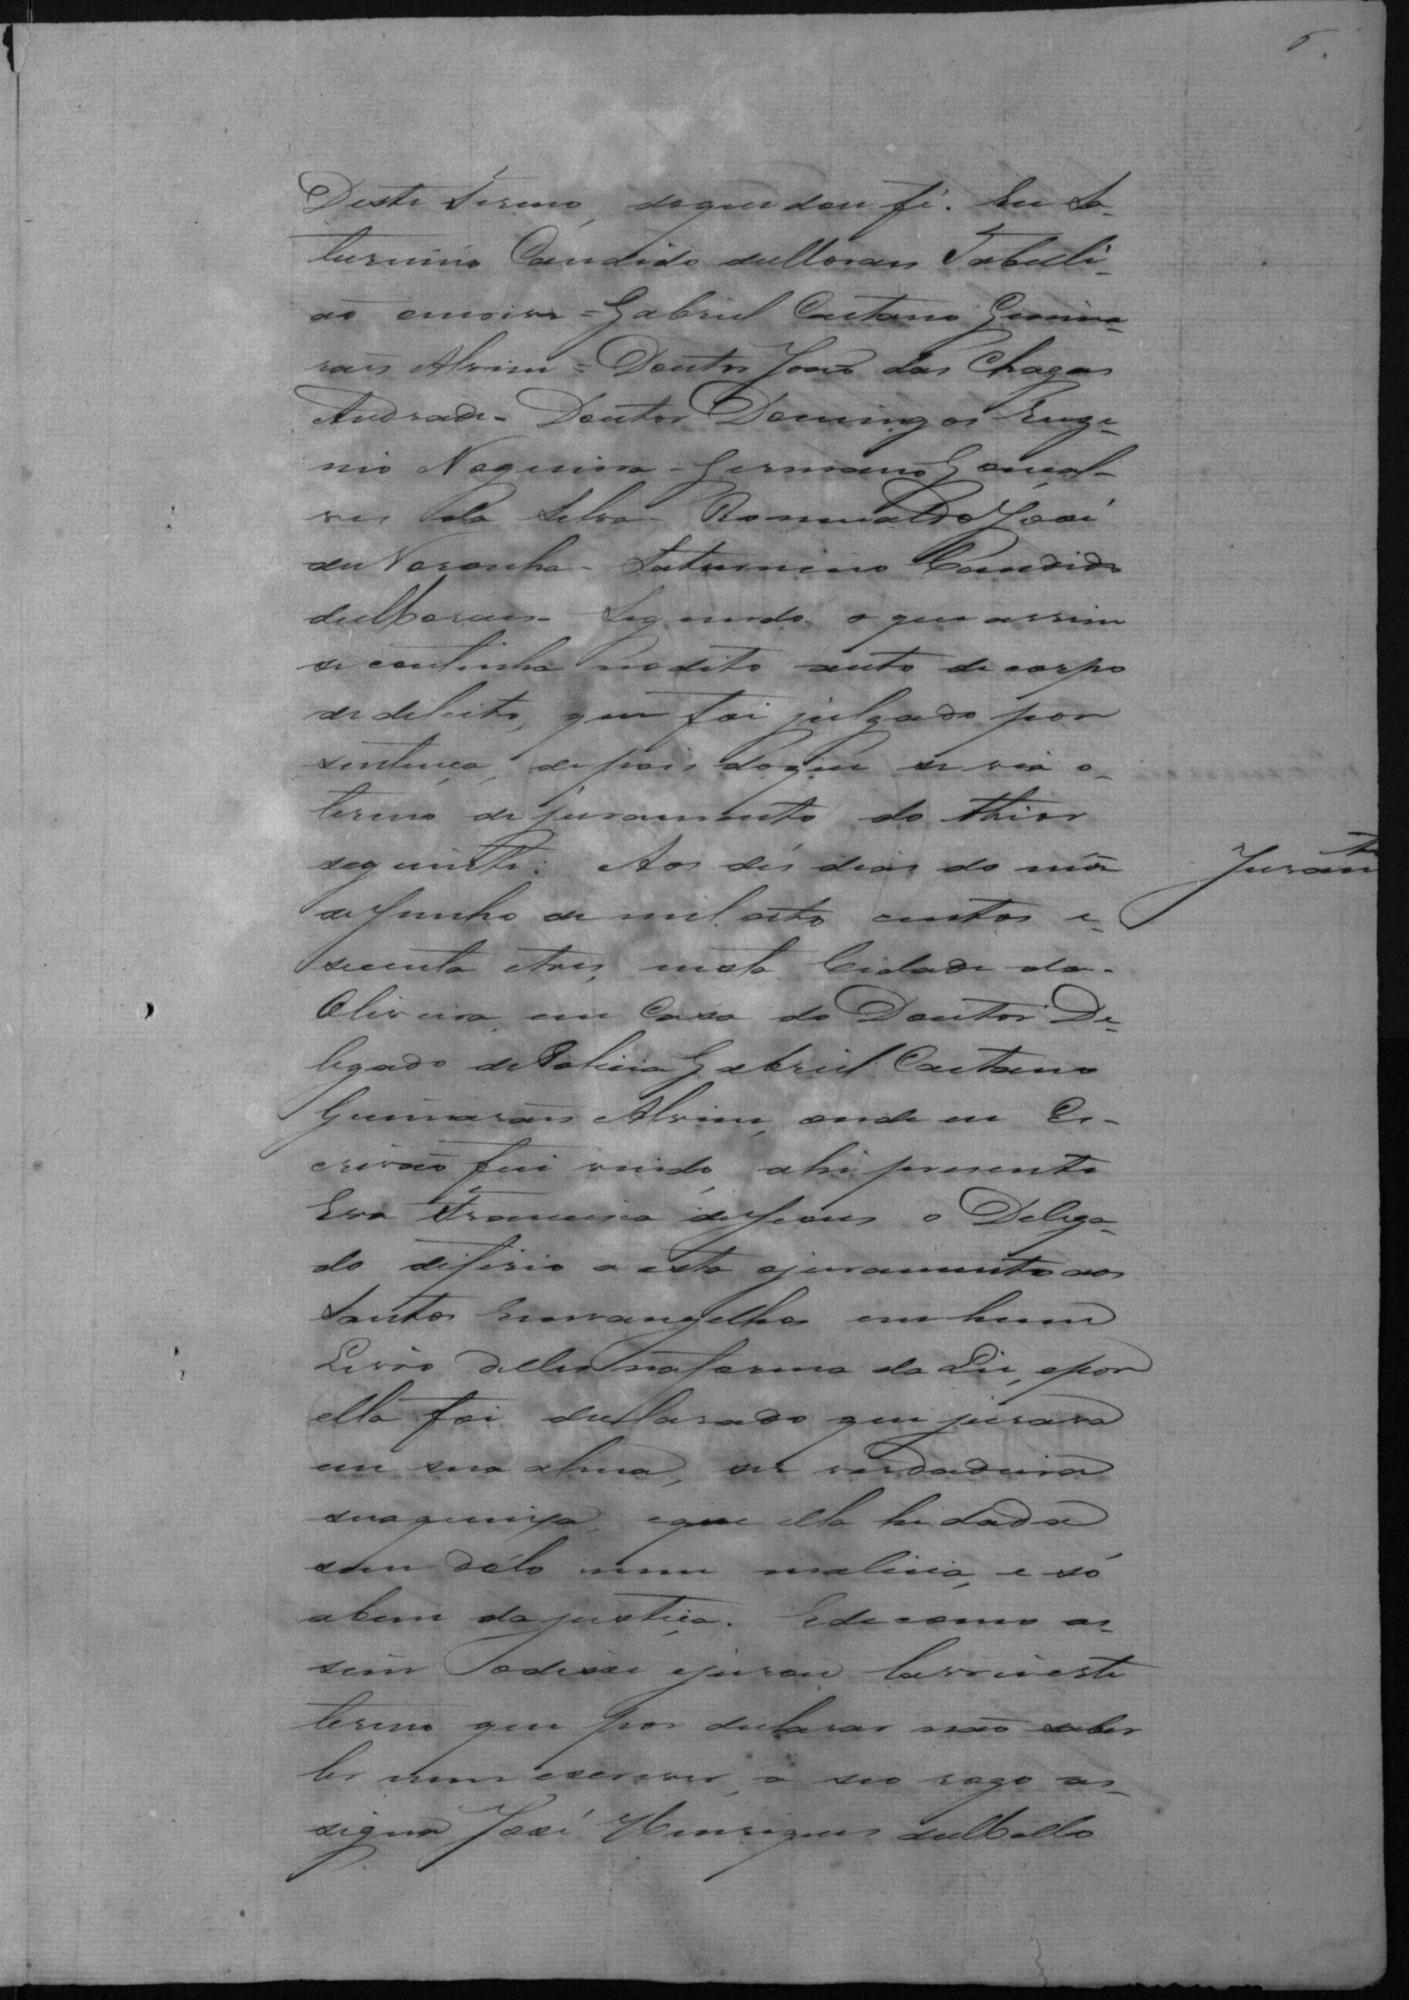 5.
Deste Termo, doque dou fé. Eu Sa-
turnino Candido de Moraes Tabelli-
ão escrivi = Gabriel Caetano Guima-
raes Alvim = Doutor João das Chagas
Andrade - Doutor Domingos Euge-
nio Nogueira - Germano Gonçal-
ves da Silva - Romualdo José
de Noronha - Saturnino Candido
de Moraes - Segundo o que assim
se continha no dito auto de corpo
de delicto, que foi julgado por
sentença, depois do que se via o
termo de juramento do thior
seguinte: Aos deis dias do mês
de Junho de mil oito centos e
secenta e tres, nesta Cidade da
Oliveira em Casa do Doutor De-
legado de Policia Gabriel Caetano
Guimarães Alvim, onde eu Es-
crivão fui vindo, ahi presente
Eva Francisca de Jesus o Delega-
do diferio a esta o juramento aos
Santos Envangelhos em hum
Livro delles na forma da Lei, e por
ella foi declarado que jurava
em sua alma, ser verdadeira
sua queixa, e que ella hé dada
sem dólo nem malicia, e só
a bem da justiça. E de como as-
sim o disse e jurou lavrei este
termo que por declarar não saber
ler nem escrever, a seo rogo as-
signa José Henriques de Mello
Juramto